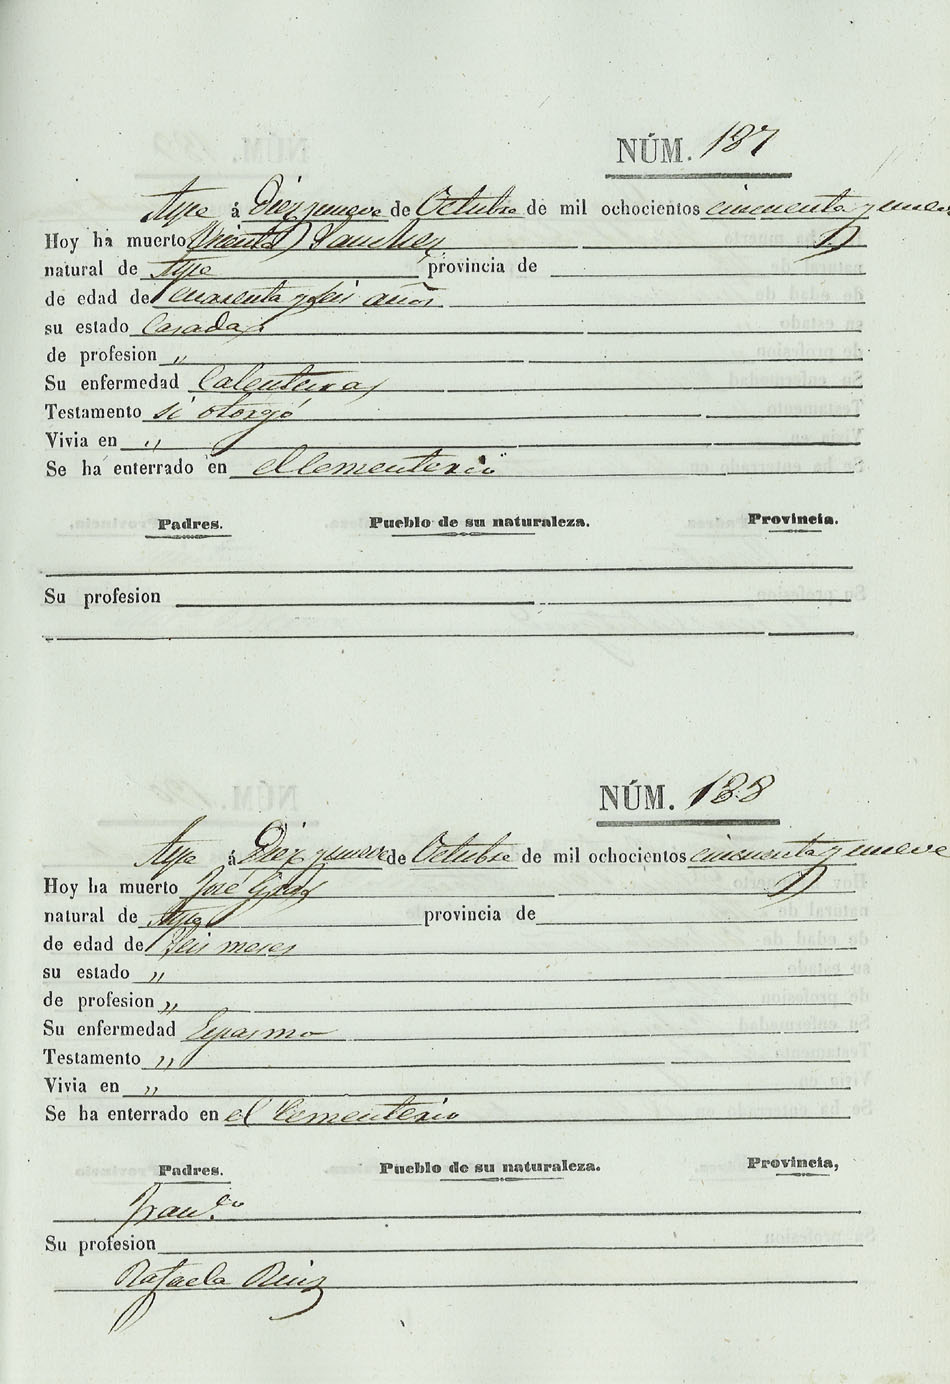 NÚM. 187
á Diez y nueve de Octubre de mil ochocientos cincuenta y nueve
Hoy ha muerto Vicenta Sanchez
natural de provincia de
de edad de cuarenta y seis años
su estado Casada
de profesion „
Su enfermedad Calentura
Testamento si otorgó
Vivia en „
Se ha enterrado en el Cementerio
Padres. Pueblo de su naturaleza. Provincia.
Su profesion
NÚM. 188
á Diez y nueve de Octubre de mil ochocientos cincuenta y nueve
Hoy ha muerto José
natural de provincia de
de edad de seis meses
su estado „
de profesion „
Su enfermedad Espasmo
Testamento „
Vivia en „
Se ha enterrado en el Cementerio
Padres. Pueblo de su naturaleza. Provincia,
Fran.co
Su profesion
Rafaela Ruiz